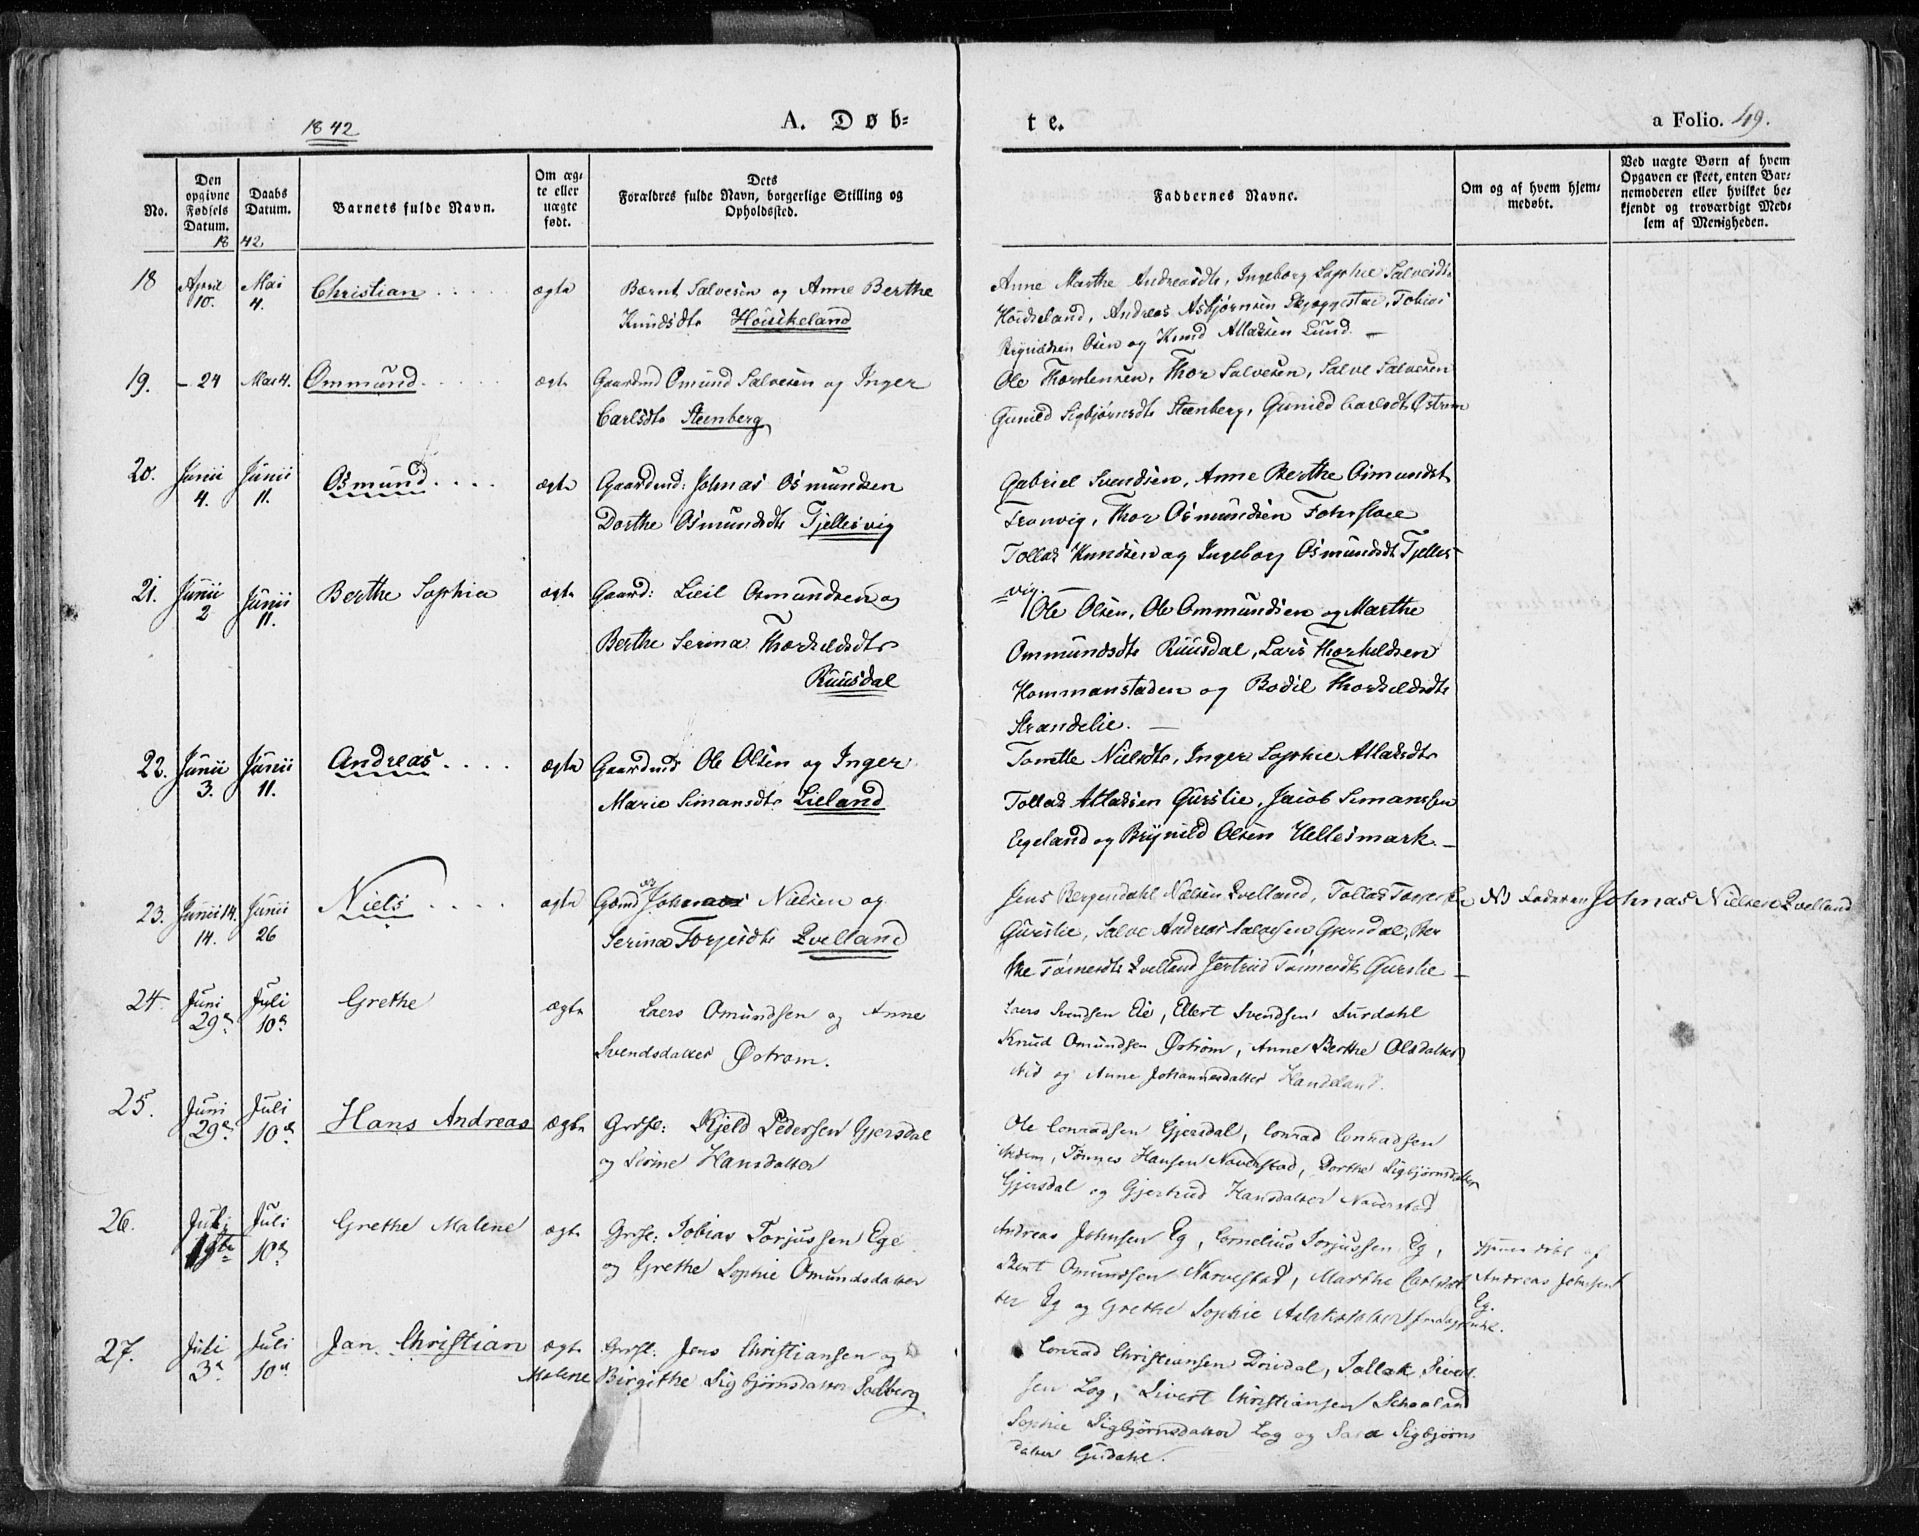 1842
A. Døb-
No.
Den opgivne Fødsels Datum.
Daabs Datum.
Barnets fulde Navn.
Om ægte eller uægte født.
Dets Forældres fulde Navn, borgerlige Stilling og Opholdssted.
18 42.
18 April 10. Mai 4. Christian ægte Bærnt Salvesen og Anne Berthe
Knudsdtr Hoiskeland
19. - 24 Mai 4. Ommund ægte Gaardmd Omund Salvesen og Inger
Carlsdtr Steenberg
20. Junii 4. Junii 11. Osmund ægte Gaardmd: Johnas Osmundsen
Dorthe Osmundsdtr Tjellesvig
21. Junii 2 Junii 11. Berthe Sophia ægte Gaard: Lieil Osmundsen og
Berthe Serina Thorkeldsdtr
Ruusdal
22. Junii 3. Junii 11. Andreas ægte Gaardmd Ole Olsen og Inger
Marie Simansdtr Lieland
23. Junii 14. 14. Junii 26 Niels ægte Gdmd Johnas Nielsen og
Serina Torjesdtr Qvelland
24. Juni 29de Juli 10de Grethe ægte Laers Omundsen og Anne
Svendsdatter Østrøm.
25. Juni 29de Juli 10de Hans Andreas ægte Grdsl: Kjeld Pedersen Gjersdal
og Sirine Hansdatter
26. Juli Juli 10de Grethe Malene ægte Grdsl: Tobias Torjussen Ege
og Grethe Sophie Omundsdatter
27. Juli 3de Juli 10de Jan Christian ægte Grdsl: Jens Christiansen og
Malene Birgithe Sigbjørnsdatter Solberg
te.
a Folio. 49.
Faddernes Navne.
Om og af hvem hjemmedøbt.
Ved uægte Børn af hvem Opgaven er skeet, enten Barnemoderen eller hvilket bekjendt og troværdigt Medlem af Menigheden.
Anne Marthe Andreasdtr, Ingeborg Sophie Salvesdtr
Hoidseland, Andreas Asbjørnsen Skjeggestad, Tobias
Brynildsen Osen og Knud Atlaksen Lund. -
Ole Thorstensen, Thor Salvesen, Salve Salvesen
Gunild Sigbjørnsdtr Steenberg, Gunild Carlsdtr Østrøm
Gabriel Svendsen, Anne Berthe Osmundsdt
Tronvig, Thor Osmundsen
Tollak Knudsen og Ingeborg Osmundsdt Tjelles-
vig. -
Ole Olsen, Ole Ommundsen og Marthe
Ommundsdtr Ruusdal, Lars Thorkeldsen
Hommanstaden og Bodil Thorkeldsdtr
Strandelie. -
Tonette Nielsdtr, Inger Sophie Atlaksdtr
Tollak Atlaksen Gurslie, Jacob Simanssen
Egeland og Brynild Olsen Hellesmark. -
Jens Bergendahl Nielsen Qvelland, Tollak
Gurslie, Salve Andreas Salvesen Gjersdal, Ber
the Tønnesdtr Qvelland Jertrud Tønnesdtr Gurslie -
Faderen Johnas Nielsen Qvelland
Laers Svendsen Eie, Ellert Svendsen Surdahl
Knud Omundsen Østrøm, Anne Berthe Olsdatter
Mid og Anne Johannesdatter Handeland.
Ole Conradsen Gjersdal, Conrad Conradsen
ibidem, Tønnes Hansen Naverstad, Dorthe Sigbjørnsdatter
Gjersdal og Gjertrud Hansdatter Naverstad
Andreas Johnsen Eg, Cornelius Torjussen Eg,
Bent Omundsen Narvestad, Marthe Carlsdat
ter Eg og Grethe Sophie Aslaksdatter
hjemmedøbt af
Andreas Johnsen
Eg.
Conrad Christiansen Drivdal, Tollak Sivert
sen Log, Sivert Christiansen Schaaland
Sophie Sigbjørnsdatter Log og Sara Sigbjørns
datter Gjudahl.